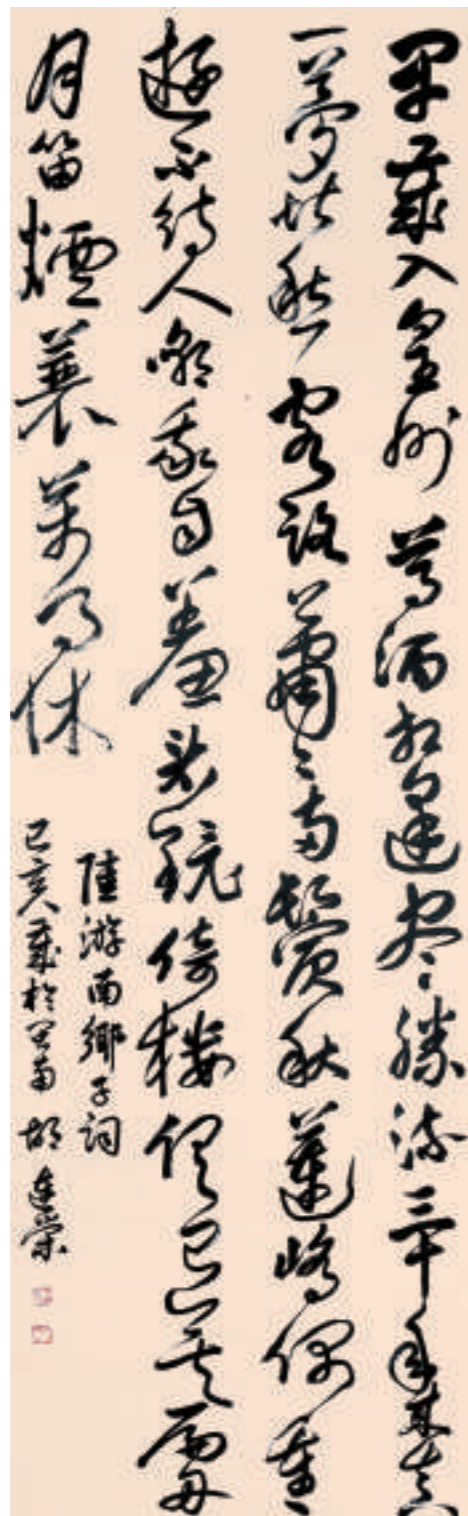 早歲入皇州尊酒相逢尽勝流三十年来真
一夢堪愁客路蕭々两鬢秋蓬嶠偶重
遊不待人嘲我自羞看鏡倚樓俱已矣扁舟
月笛煙蓑萬事休
陸游南鄉子詞
己亥歲於 南 胡連榮